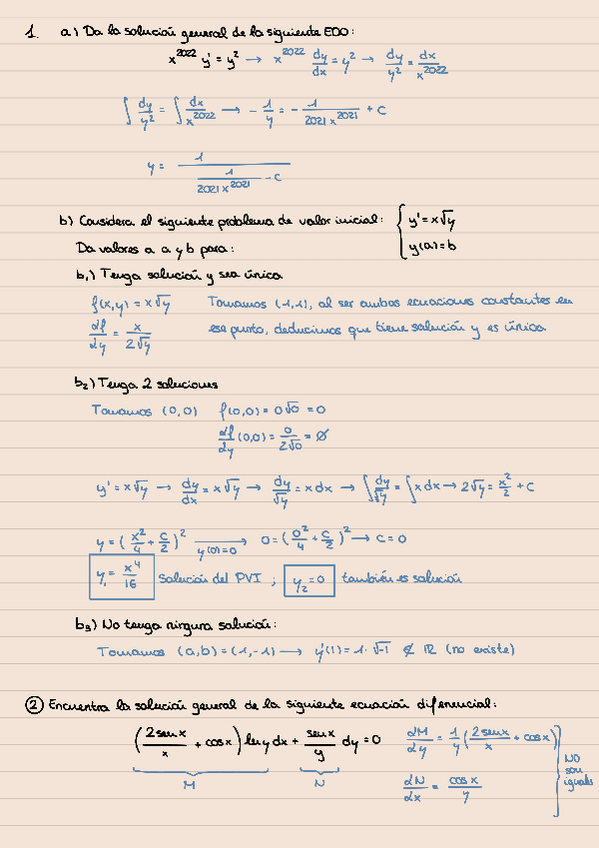 1. a) Da la solución general de la siguiente EDO:
x^2022 y' = y² → x^2022 dy/dx = y² → dy/y² = dx/x^2022
∫ dy/y² = ∫ dx/x^2022 → -1/y = - 1/(2021 x^2021) + C
y = 1/(1/(2021 x^2021) - C)
b) Considera el siguiente problema de valor inicial: { y' = x√y
y(a) = b
Da valores a a y b para:
b₁) Tenga solución y sea única
f(x,y) = x√y Tomamos (1,1), al ser ambas ecuaciones constantes en
∂f/∂y = x/(2√y) ese punto, deducimos que tiene solución y es única
b₂) Tenga 2 soluciones
Tomamos (0,0) f(0,0) = 0√0 = 0
∂f/∂y (0,0) = 0/(2√0) = ∅
y' = x√y → dy/dx = x√y → dy/√y = x dx → ∫ dy/√y = ∫ x dx → 2√y = x²/2 + C
y = (x²/4 + C/2)² → y(0)=0 0 = (0²/4 + C/2)² → C = 0
y₁ = x⁴/16 Solución del PVI ; y₂ = 0 también es solución
b₃) No tenga ninguna solución:
Tomamos (a,b) = (1,-1) → y'(1) = 1·√-1 ∉ ℝ (no existe)
② Encuentra la solución general de la siguiente ecuación diferencial:
(2senx/x + cosx) ln y dx + senx/y dy = 0 ∂M/∂y = 1/y (2senx/x + cosx)
M N
∂N/∂x = cosx/y
NO
son
iguales